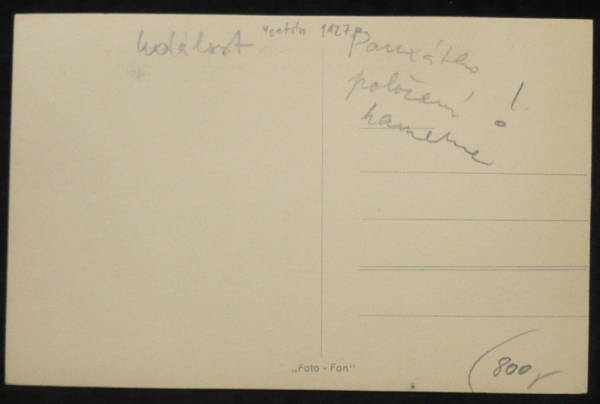 událost
Vsetín 1927
Památka
položení !
kamene
„Foto - Fon"
800,-